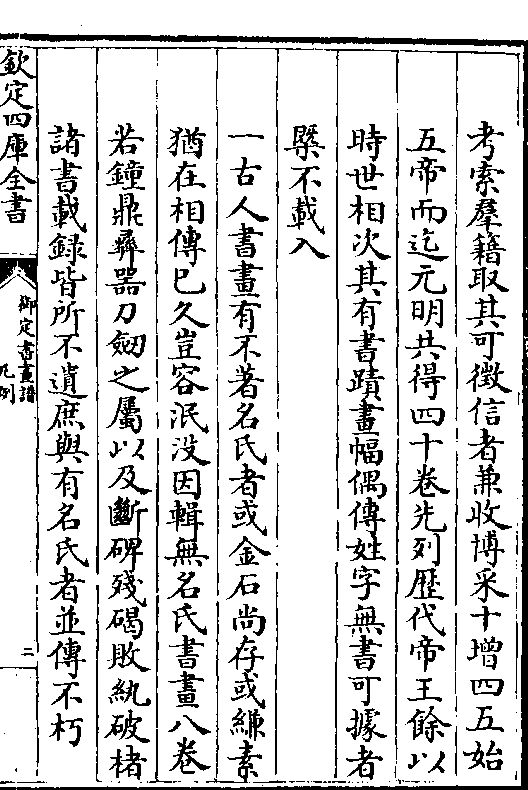 考索羣籍取其可徵信者兼收博采十增四五始
五帝而迄元明共得四十卷先列歷代帝王餘以
時世相次其有書蹟畫幅偶傳姓字無書可據者
槩不載入
一古人書畫有不著名氏者或金石尚存或縑素
猶在相傳已久豈容泯没因輯無名氏書畫八卷
若鐘鼎彞器刀劒之屬以及斷碑殘碣敗紈破楮
諸書載錄皆所不遺庶與有名氏者並傳不朽
欽定四庫全書
御定書畫譜
凡例
二